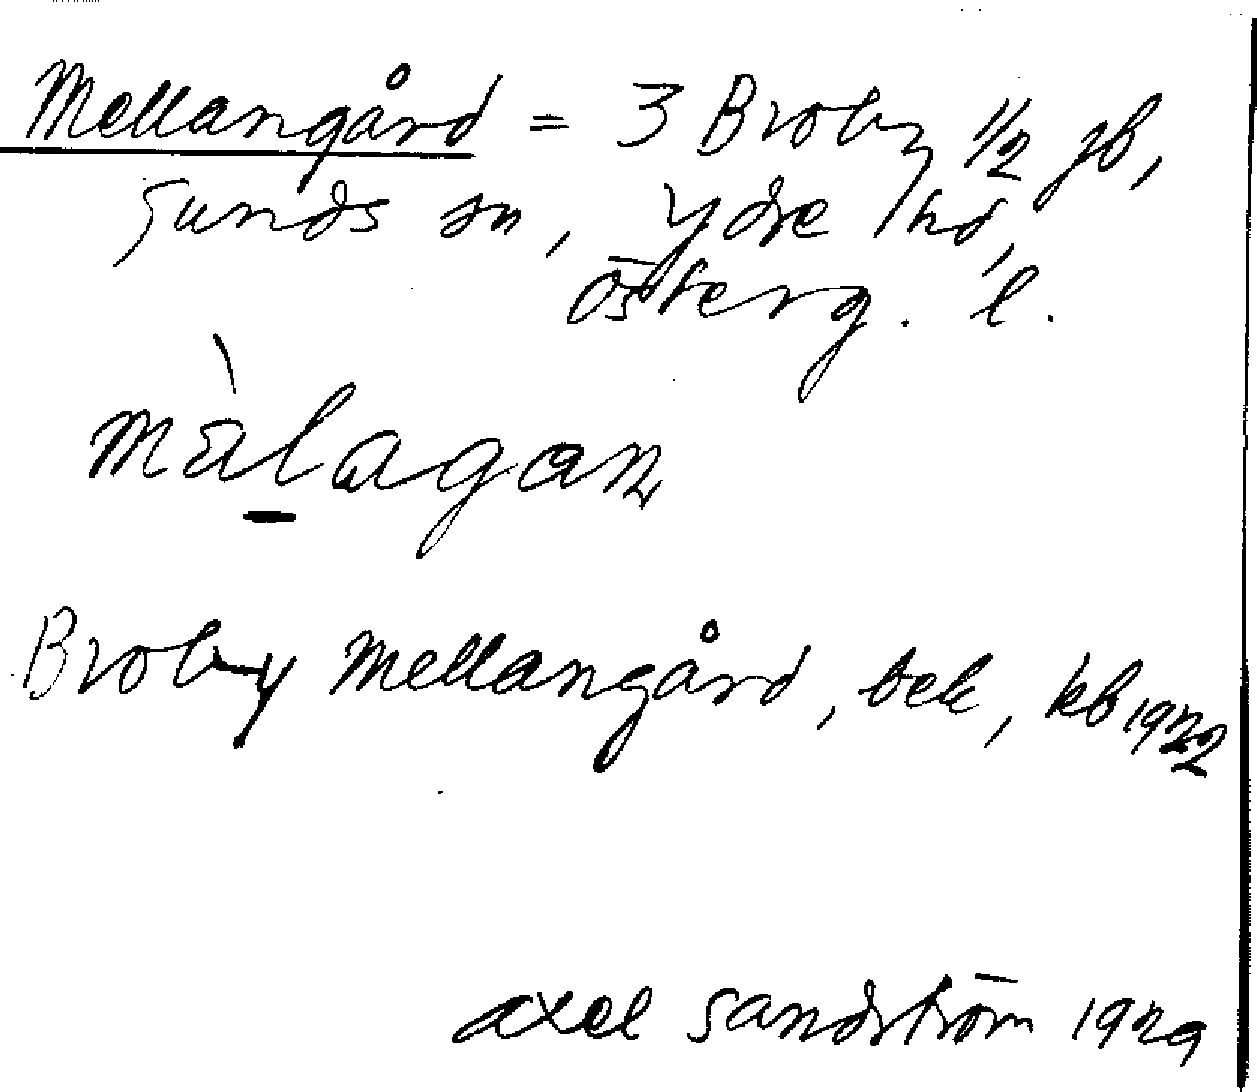 Mellangård = 3 Broby 1/2 jb,
Sunds sn, Ydre hd,
Österg. l.
mà̱lagan
Broby Mellangård, bek, kb 1922
Axel Sandström 1929